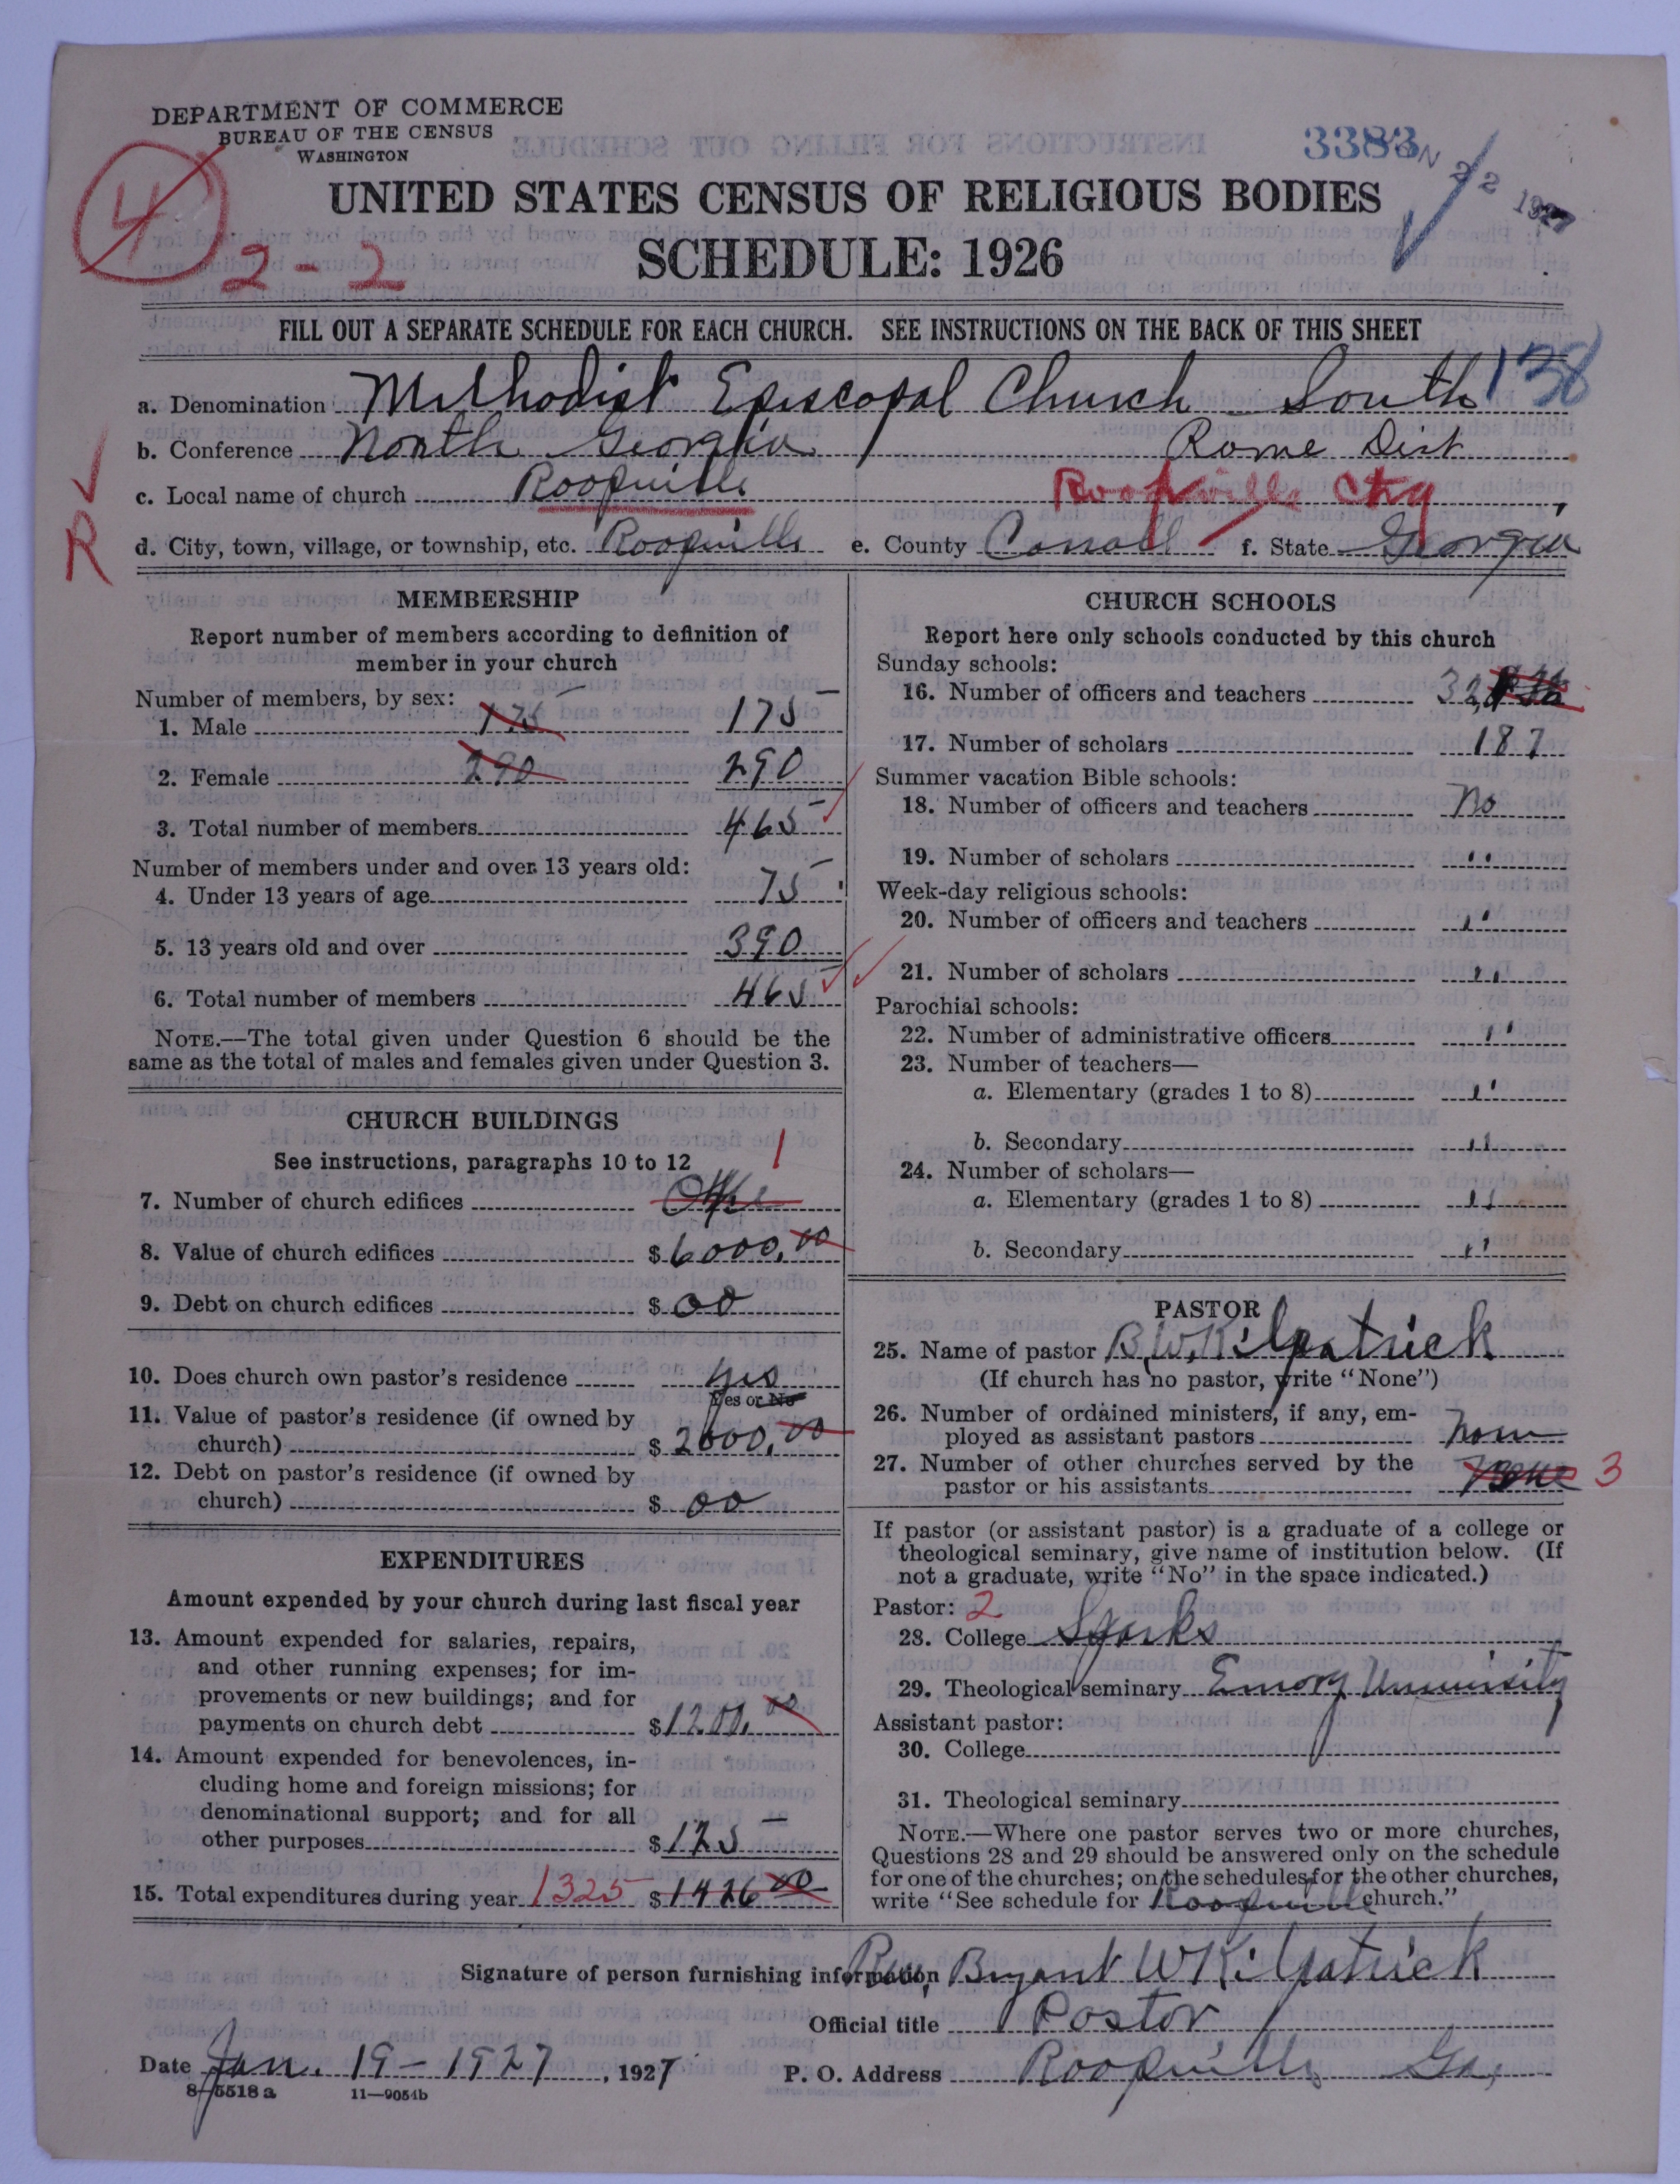 DEPARTMENT OF COMMERCE
BUREAU OF THE CENSUS
WASHINGTON
4
2-2
3383
JAN 22 1927
UNITED STATES CENSUS OF RELIGIOUS BODIES
SCHEDULE: 1926
FILL OUT A SEPARATE SCHEDULE FOR EACH CHURCH. SEE INSTRUCTIONS ON THE BACK OF THIS SHEET
138
a. Denomination Methodist Episcopal Church South
b. Conference North Georgia Rome Dist
c. Local name of church Roopville Roopville Chg
R
d. City, town, village, or township, etc. Roopville e. County Carroll f. State Georgia
MEMBERSHIP
Report number of members according to definition of
member in your church
Number of members, by sex:
1. Male 175 175
2. Female 290 290
3. Total number of members 465
Number of members under and over 13 years old:
4. Under 13 years of age 75
5. 13 years old and over 390
6. Total number of members 465
NOTE.—The total given under Question 6 should be the
same as the total of males and females given under Question 3.
CHURCH BUILDINGS
See instructions, paragraphs 10 to 12 1
7. Number of church edifices
8. Value of church edifices $6000.00
9. Debt on church edifices $00
10. Does church own pastor's residence yes
Yes or No
11. Value of pastor's residence (if owned by
church) $2000.00
12. Debt on pastor's residence (if owned by
church) $00
EXPENDITURES
Amount expended by your church during last fiscal year
13. Amount expended for salaries, repairs,
and other running expenses; for im-
provements or new buildings; and for
payments on church debt $1200.00
14. Amount expended for benevolences, in-
cluding home and foreign missions; for
denominational support; and for all
other purposes $125
15. Total expenditures during year 1325 $1426 00
CHURCH SCHOOLS
Report here only schools conducted by this church
Sunday schools:
16. Number of officers and teachers 32
17. Number of scholars 187
Summer vacation Bible schools:
18. Number of officers and teachers No
19. Number of scholars ''
Week-day religious schools:
20. Number of officers and teachers ''
21. Number of scholars ''
Parochial schools:
22. Number of administrative officers ''
23. Number of teachers—
a. Elementary (grades 1 to 8) ''
b. Secondary ''
24. Number of scholars—
a. Elementary (grades 1 to 8) ''
b. Secondary ''
PASTOR
25. Name of pastor B.W. Kilpatrick
(If church has no pastor, write "None")
26. Number of ordained ministers, if any, em-
ployed as assistant pastors None
27. Number of other churches served by the
pastor or his assistants None 3
If pastor (or assistant pastor) is a graduate of a college or
theological seminary, give name of institution below. (If
not a graduate, write "No" in the space indicated.)
Pastor: 2
28. College Sparks
29. Theological seminary Emory University
Assistant pastor:
30. College
31. Theological seminary
NOTE.—Where one pastor serves two or more churches,
Questions 28 and 29 should be answered only on the schedule
for one of the churches; on the schedules for the other churches,
write "See schedule for Roopville church."
Signature of person furnishing information Rev. Bryant W Kilpatrick
Official title Pastor
Date Jan. 19-1927, 1927 P. O. Address Roopville Ga,
8-5518 a 11—9054b